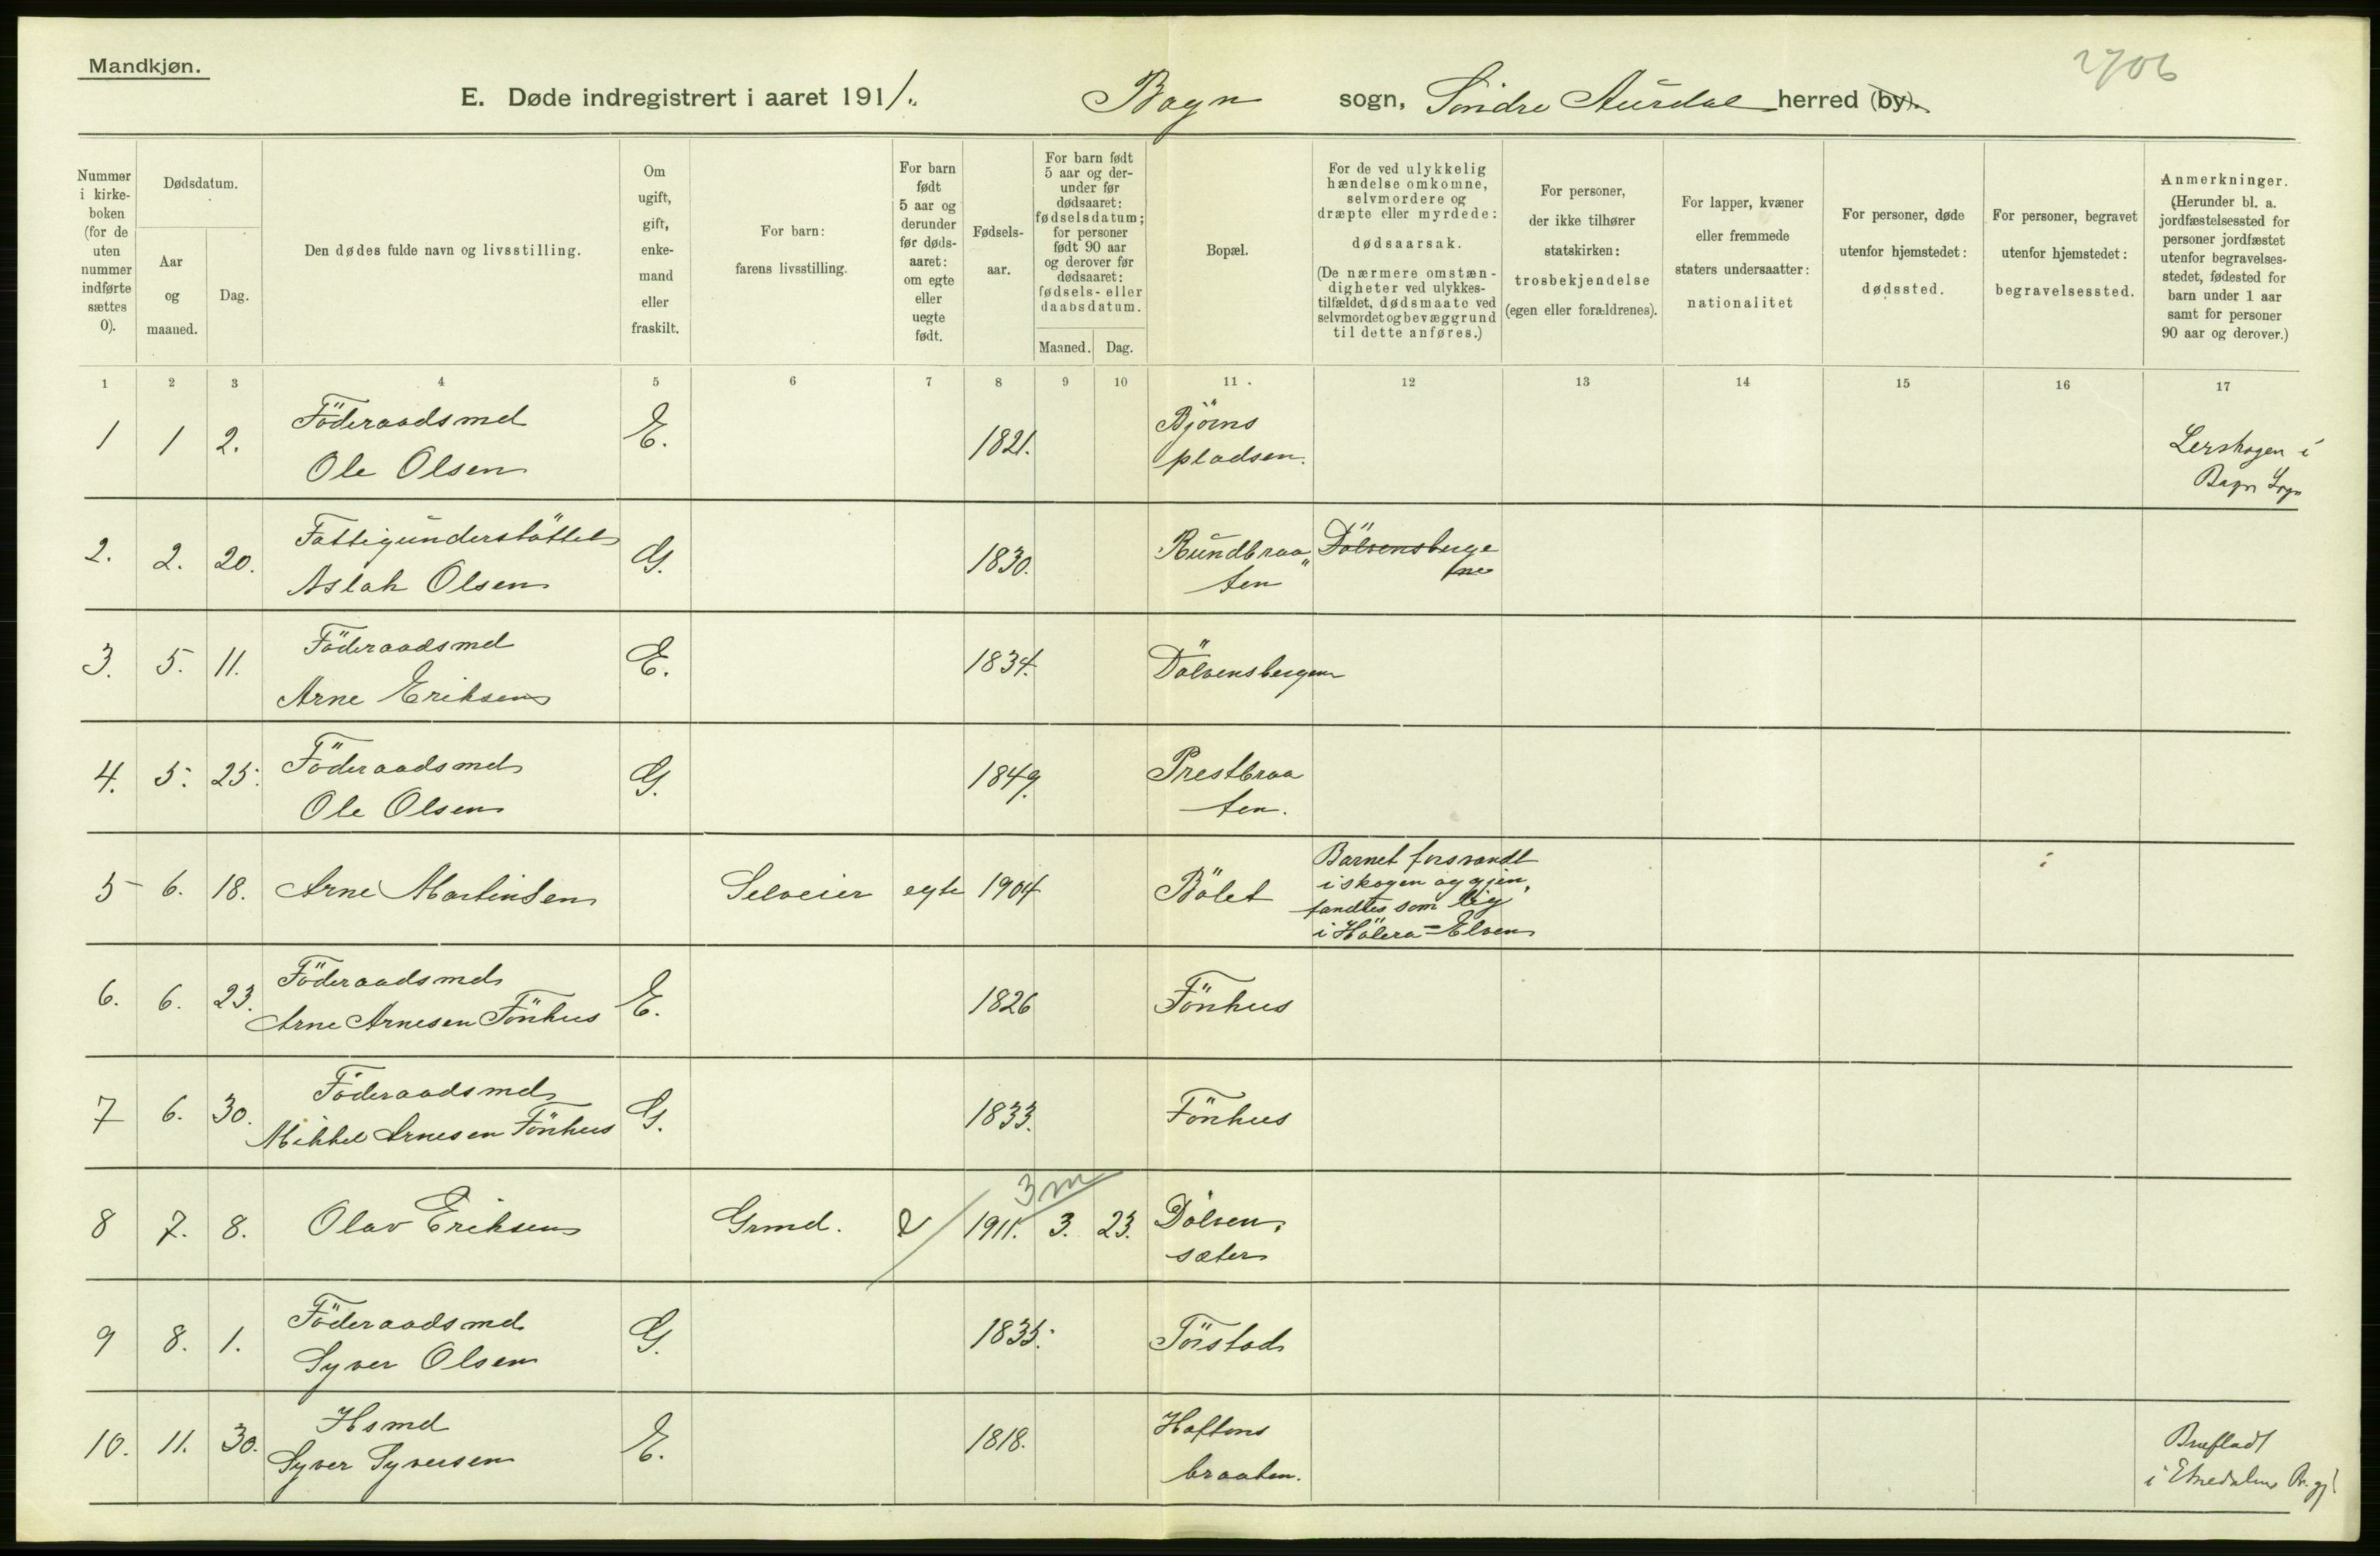 Mandkjøn.
2706
E. Døde indregistrert i aaret 1911. Bagn sogn, Söndre Aurdal herred (by).
Nummer i kirke-boken (for de uten nummer indførte sættes 0).
Dødsdatum.
Aar og maaned.
Dag.
Den dødes fulde navn og livsstilling.
Om ugift, gift, enke-mand eller fraskilt.
For barn: farens livsstilling.
For barn født 5 aar og derunder før døds-aaret: om egte eller uegte født.
Fødsels-aar.
For barn født 5 aar og der-under før dødsaaret: fødselsdatum; for personer født 90 aar og derover før dødsaaret: fødsels- eller daabsdatum.
Maaned. Dag.
Bopæl.
For de ved ulykkelig hændelse omkomne, selvmordere og dræpte eller myrdede: dødsaarsak. (De nærmere omstæn-digheter ved ulykkes-tilfældet, dødsmaate ved selvmordet og bevæggrund til dette anføres.)
For personer, der ikke tilhører statskirken: trosbekjendelse (egen eller forældrenes).
For lapper, kvæner eller fremmede staters undersaatter: nationalitet
For personer, døde utenfor hjemstedet: dødssted.
For personer, begravet utenfor hjemstedet: begravelsessted.
Anmerkninger. (Herunder bl. a. jordfæstelsessted for personer jordfæstet utenfor begravelses-stedet, fødested for barn under 1 aar samt for personer 90 aar og derover.)
1 2 3 4 5 6 7 8 9 10 11 . 12 13 14 15 16 17
1 1 2. Föderaadsmd Ole Olsen E. 1821. Björns pladsen. Lershagen i Bagn Sogn
2. 2. 20. Fattigunderstöttet Aslak Olsen G. 1830. Rundbraa„ ten Dölvensberge ne
3. 5. 11. Föderaadsmd Arne Eriksen E. 1834. Dölvensbergene
4. 5. 25. Föderaadsmd Ole Olsen G. 1849. Prestbraa ten.
5 6. 18. Arne Martinsen Selveier egte 1904 Bölet Barnet forsvandt i skogen og gjen, fandtes som lig i Hölera=Elven
6. 6. 23. Föderaadsmd Arne Arnesen Fönhus E. 1826 Fönhus
7 6. 30. Föderaadsmd Mikkel Arnesen Fönhus G. 1833. Fönhus
3 m
8 7. 8. Olav Eriksen Grmd. e 1911. 3. 23. Dölven, sæter
9 8. 1. Föderaadsmd Syver Olsen G. 1835. Törstad
10. 11. 30. Hsmd Syver Syversen E. 1818. Haftens braaten. Bruflat i Etnedalens Pr.gj.